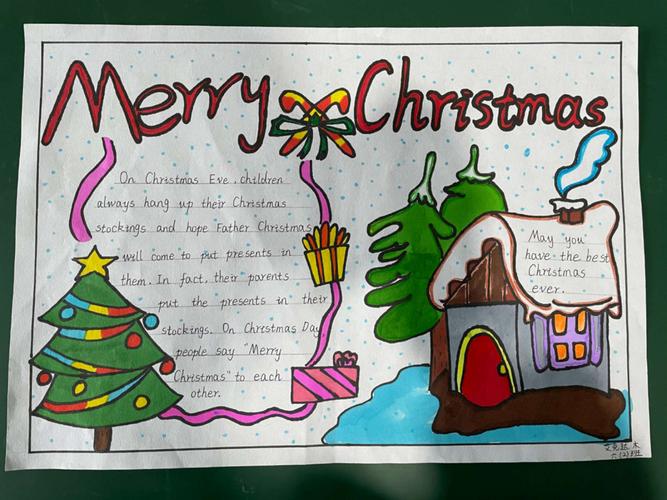 Merry Christmas
On Christmas Eve, children
always hang up their Christmas
stockings and hope Father Christmas
will come to put presents in
them. In fact, their parents
put the presents in their
stockings. On Christmas Day
people say "Merry
Christmas" to each
other.
May you
have the best
Christmas
ever.
六(2)班